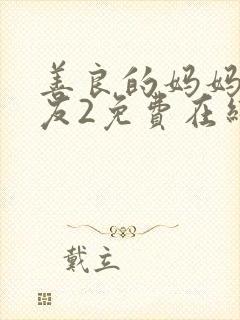 善良的妈妈
友2免費在
戴立